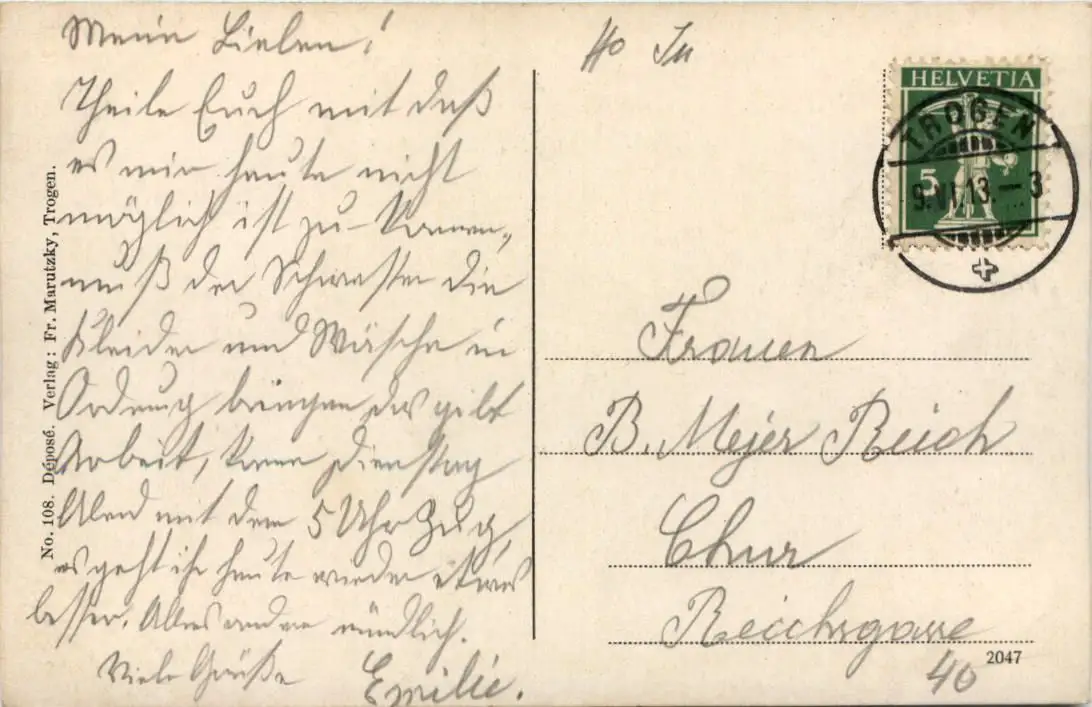 Meine Lieben!
Theile Euch mit daß
es mir heute nicht
möglich ist zu komen,
muß der Schwester die
Kleider und Wäsche in
Ordnung bringen das gibt
Arbeit, kome Dienstag
Abend mit dem 5 Uhr Zug,
es geht ihr heute wieder etwas
besser. Alles andre mündlich.
Viele Grüße Emilie.
No. 108. Déposé. Verlag: Fr. Marutzky, Trogen.
HELVETIA
5
TROGEN
9.VI.13.–3
Frauen
B. Mejer Reich
Chur
Reichsgasse
40
2047